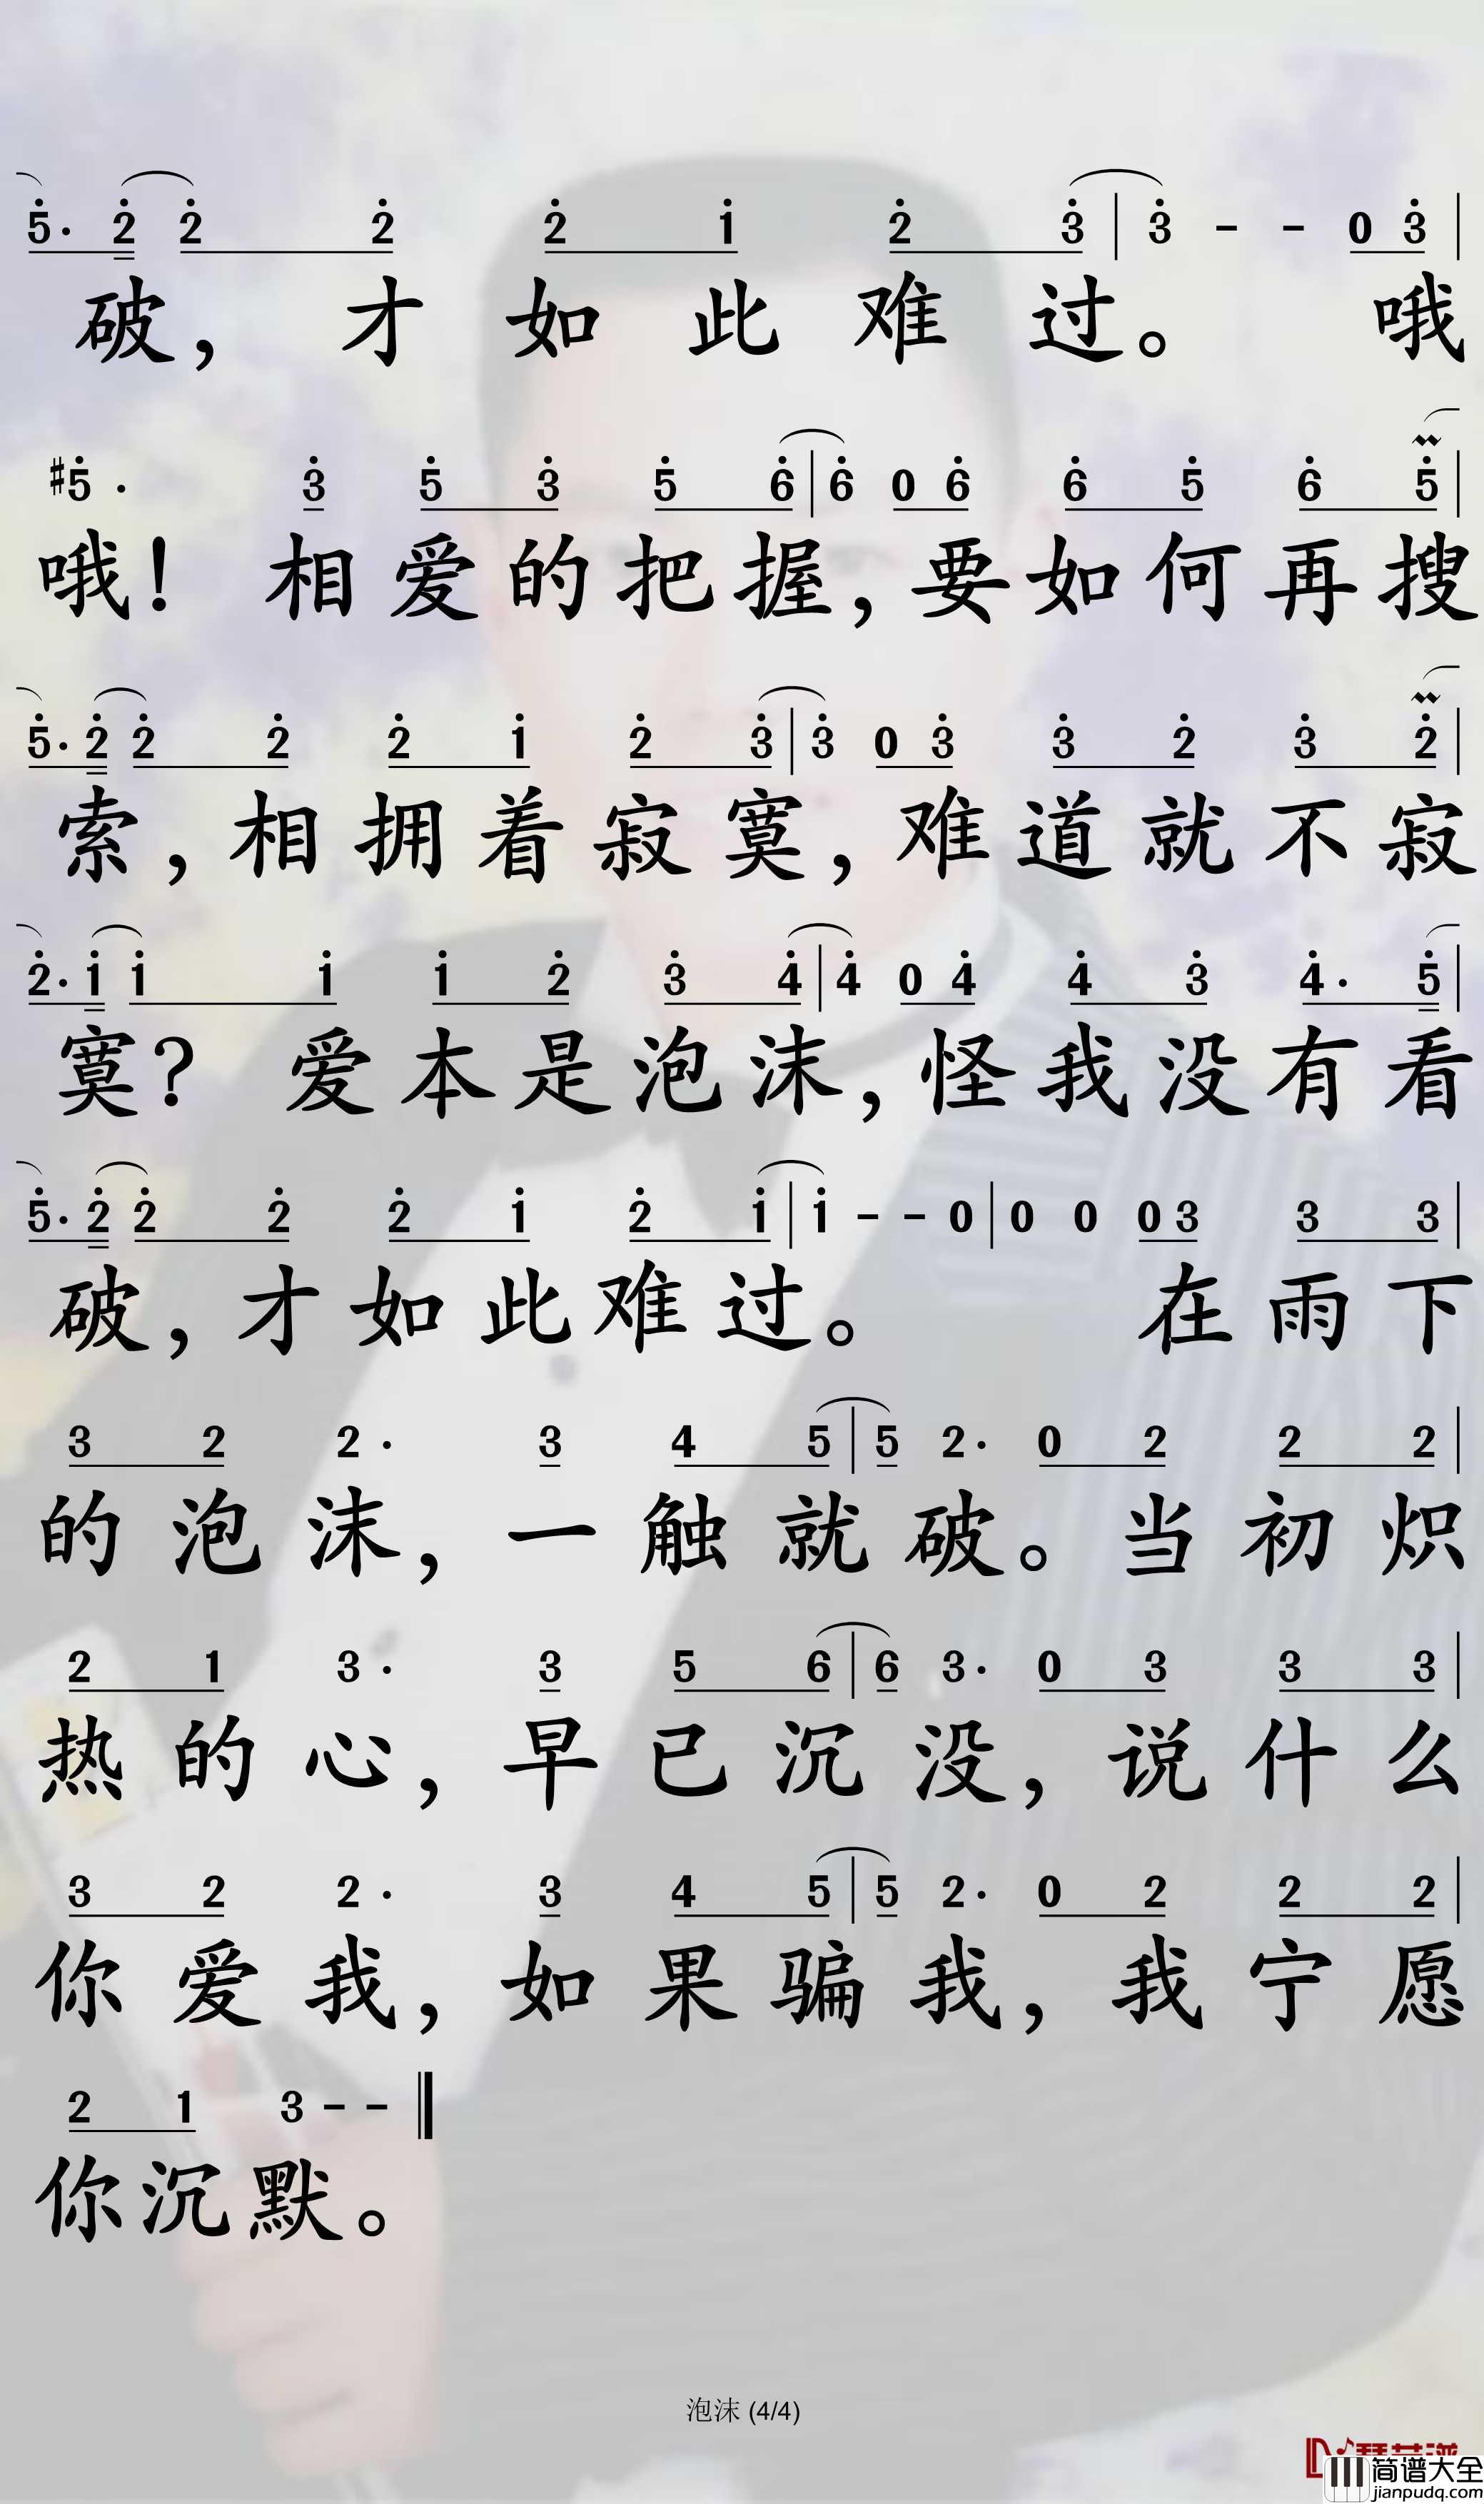 5· 2 2 2 2 1 2 3 | 3 - - 0 3 |
破，才如此难过。 哦
#5· 3 5 3 5 6 | 6 0 6 6 5 6 5 |
哦！相爱的把握，要如何再搜
5· 2 2 2 2 1 2 3 | 3 0 3 3 2 3 2 |
索，相拥着寂寞，难道就不寂
2· 1 1 1 1 2 3 4 | 4 0 4 4 3 4· 5 |
寞？爱本是泡沫，怪我没有看
5· 2 2 2 2 1 2 1 | 1 - - 0 | 0 0 0 3 3 3 |
破，才如此难过。 在雨下
3 2 2· 3 4 5 | 5 2· 0 2 2 2 |
的泡沫，一触就破。当初炽
2 1 3· 3 5 6 | 6 3· 0 3 3 3 |
热的心，早已沉没，说什么
3 2 2· 3 4 5 | 5 2· 0 2 2 2 |
你爱我，如果骗我，我宁愿
2 1 3 - -
你沉默。
泡沫 (4/4)
简谱大全
jianpudq.com